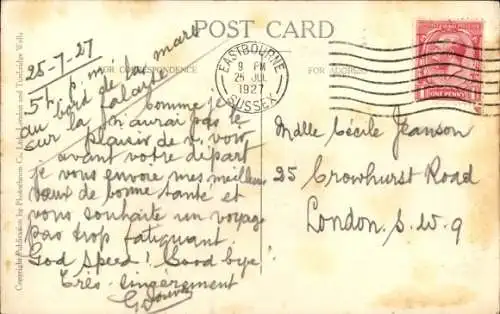 POST CARD
FOR CORRESPONDENCE
FOR ADDRESS
EASTBOURNE
9 PM
25 JUL
1927
SUSSEX
ONE PENNY
25-7-27
5 h. p. m.
au bord de la mare
sur la falaise
Comme je
n'aurai pas le
plaisir de v. voir
avant votre départ
je vous envoie mes meilleurs
vœux de bonne santé et
vous souhaite un voyage
pas trop fatiguant.
God speed! Good bye!
Très sincèrement
Mdlle Cécile Jeanson
25 Crowhurst Road
London. S. W. 9
Copyright Publication by Photochrom Co., Ltd., London and Tunbridge Wells